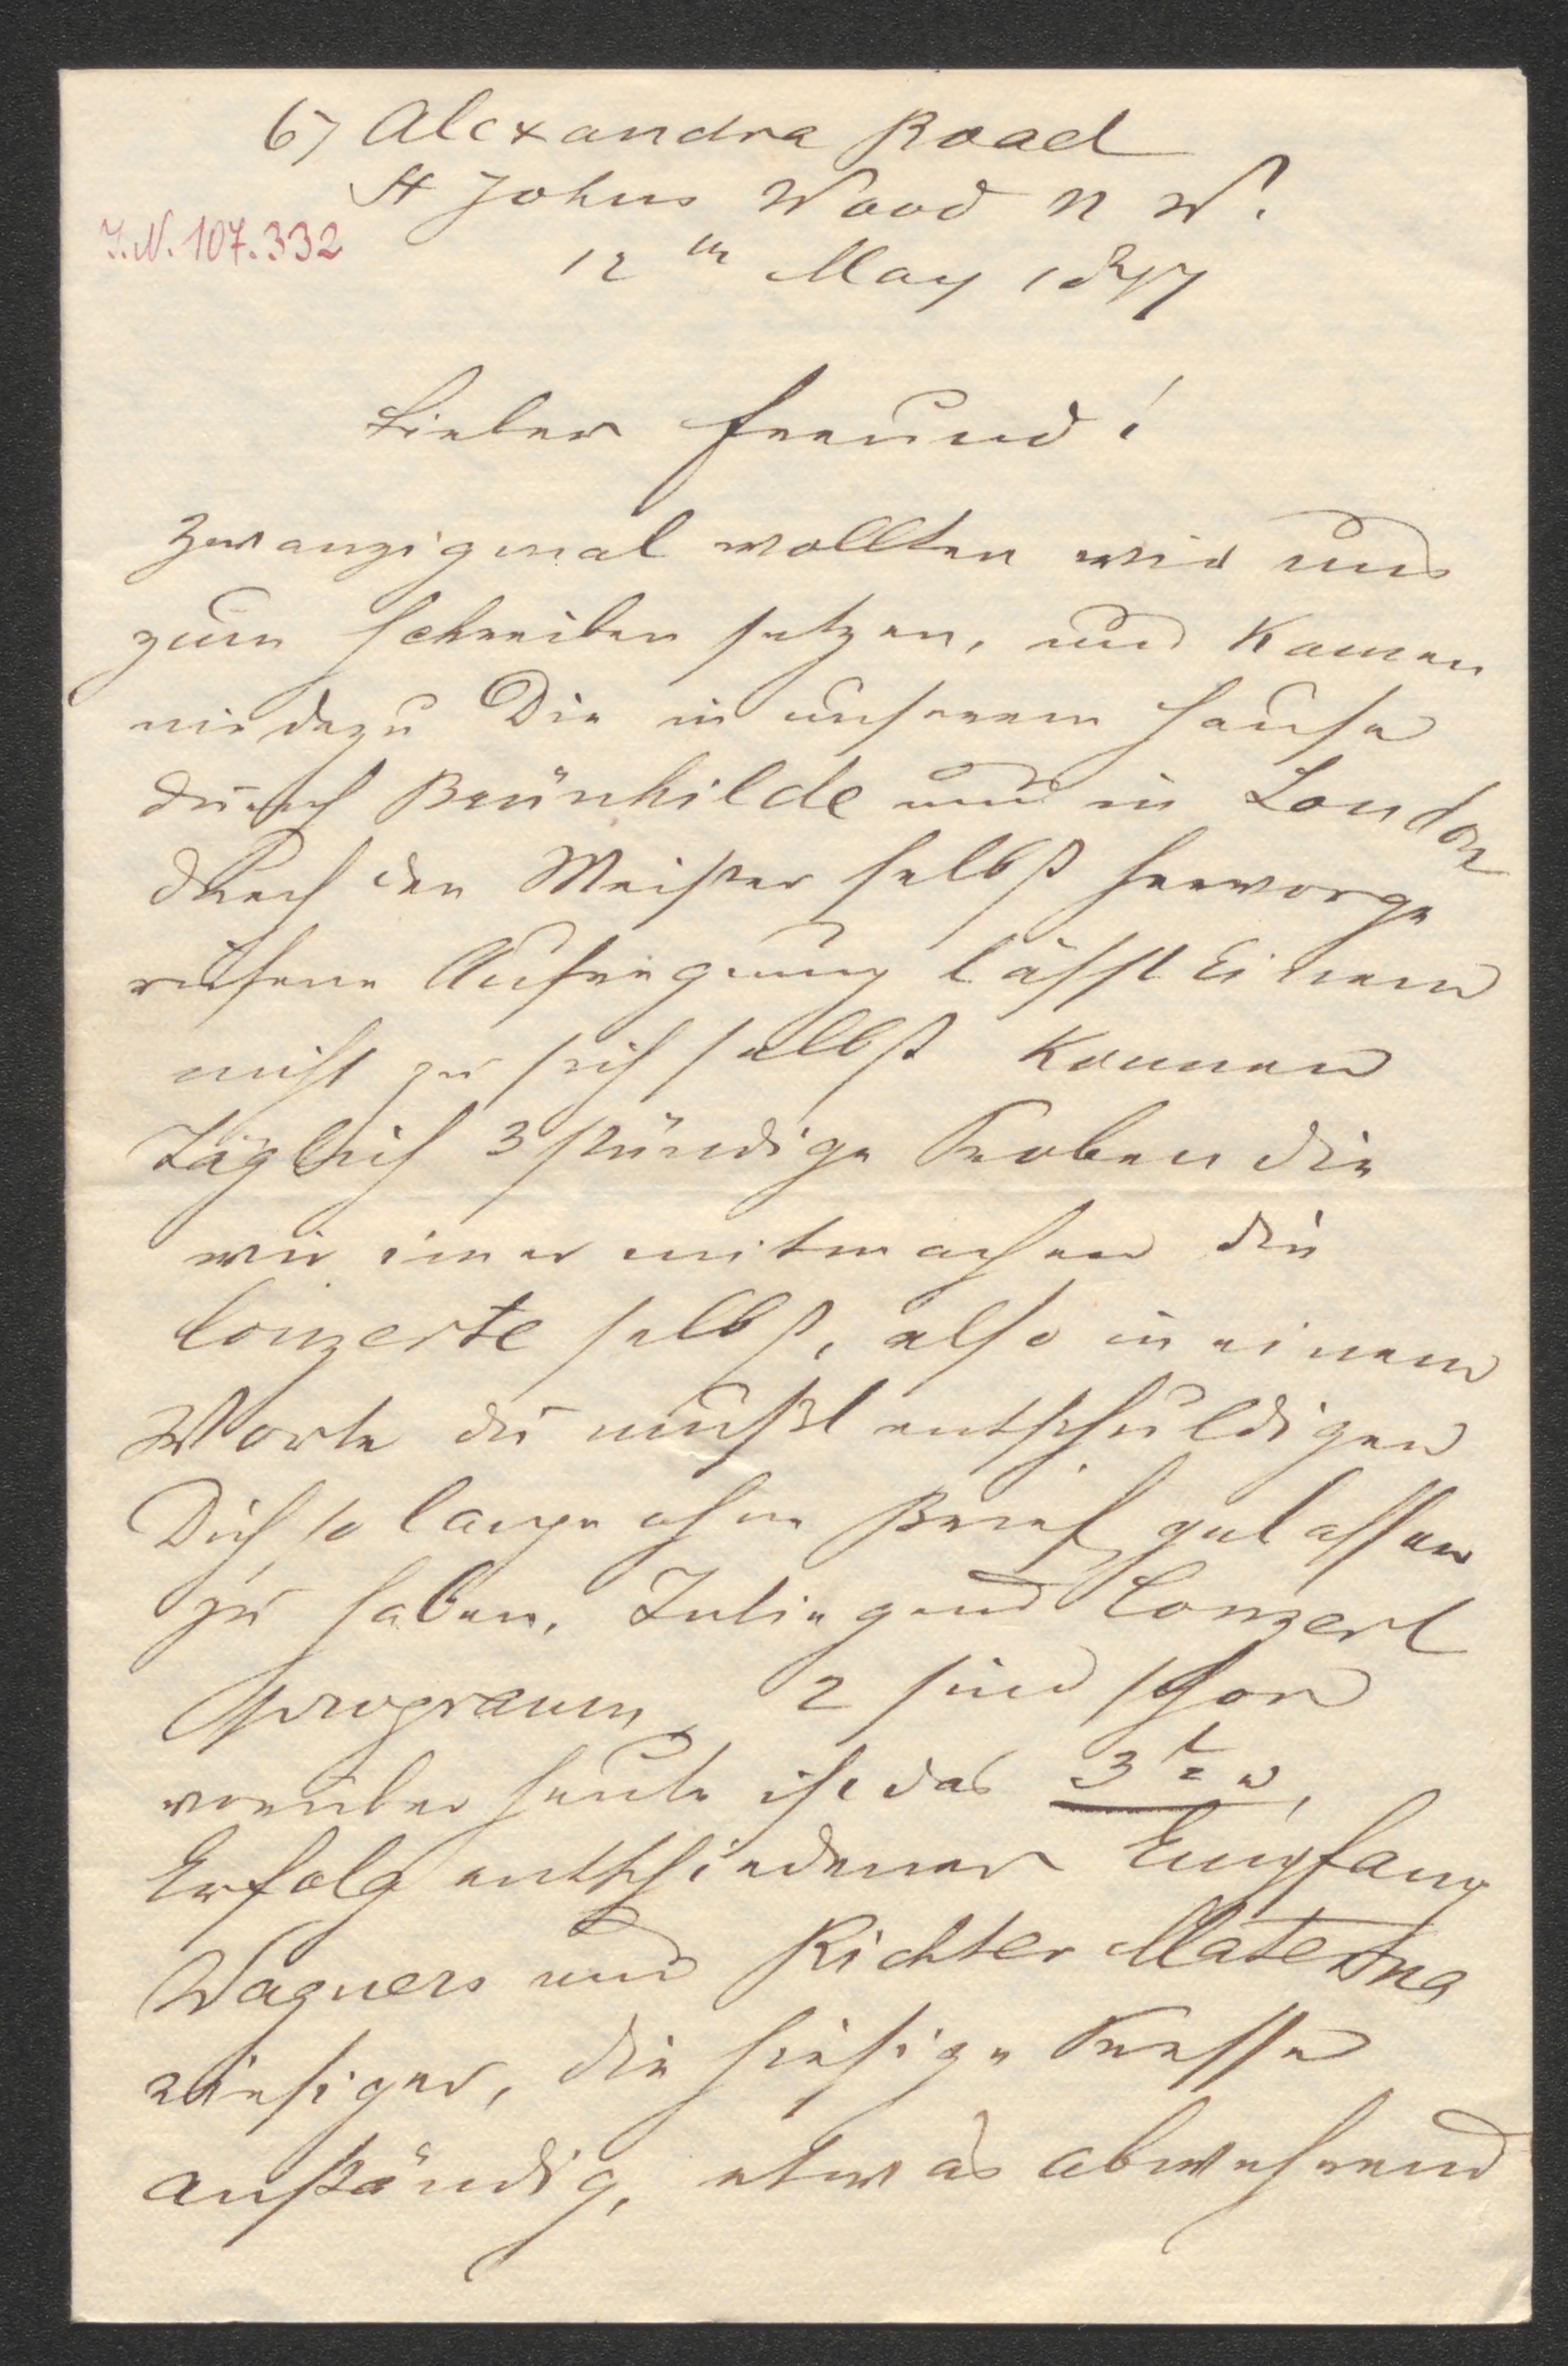 67 Alexandra Road
St Johns Wood N W.
J.N. 107.332
12th May 1877
Lieber Freund!
Zwanzigmal wollten wir uns
zum Schreiben setzen, und kamen
nie dazu Die in unserem Hause
durch Brünhilde und in London
durch den Meister selbst hervorge
rufene Aufregung lässt Einem
nicht zu sich selbst kommen
Täglich 3 stündige Proben die
wir imer mitmachen die
Conzerte selbst, also in einem
Worte du mußt entschuldigen
Dich so lange ohne Brief gelassen
zu haben. Inliegend Conzert
programm, 2 sind schon
vorüber heute ist das 3te,
Erfolg entschiedener Empfang
Wagners und Richter Materna
riesiger, die hiesige Presse
anständig, etwas abwehrend